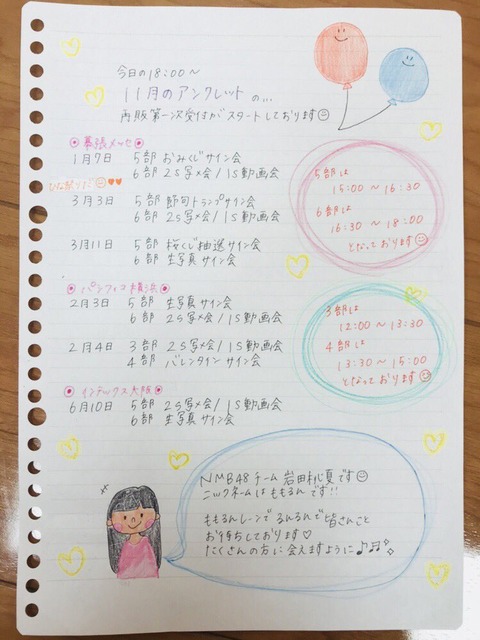 今日の18:00〜
11月のアンクレットの...
再販第一次受付がスタートしております
幕張メッセ
1月9日 5部 おみくじサイン会
6部 2S写メ会/1S動画会
ひな祭りだ
3月3日 5部 節句トランプサイン会
6部 2S写メ会/1S動画会
3月11日 5部 桜くじ抽選サイン会
6部 生写真サイン会
5部は
15:00〜16:30
6部は
16:30〜18:00
となっております
パシフィコ横浜
2月3日 5部 生写真サイン会
6部 2S写メ会/1S動画会
2月4日 3部 2S写メ会/1S動画会
4部 バレンタインサイン会
3部は
12:00〜13:30
4部は
13:30〜15:00
となっております
インデックス大阪
6月10日 5部 2S写メ会/1S動画会
6部 生写真サイン会
NMB48チーム 岩田桃夏です
ニックネームはももるんです!!
ももるんレーンでるんるんで皆さんこと
お待ちしております
たくさんの方に会えますように♪♬